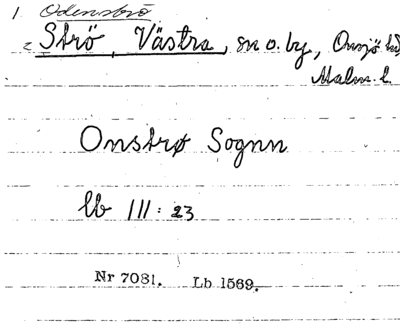 1 Odensbrö
Strö, Västra, sn o. by, Onsjö hd,
Malm. l.
Onstrø Sognn
lb III: 23
Nr 7081. Lb 1569.